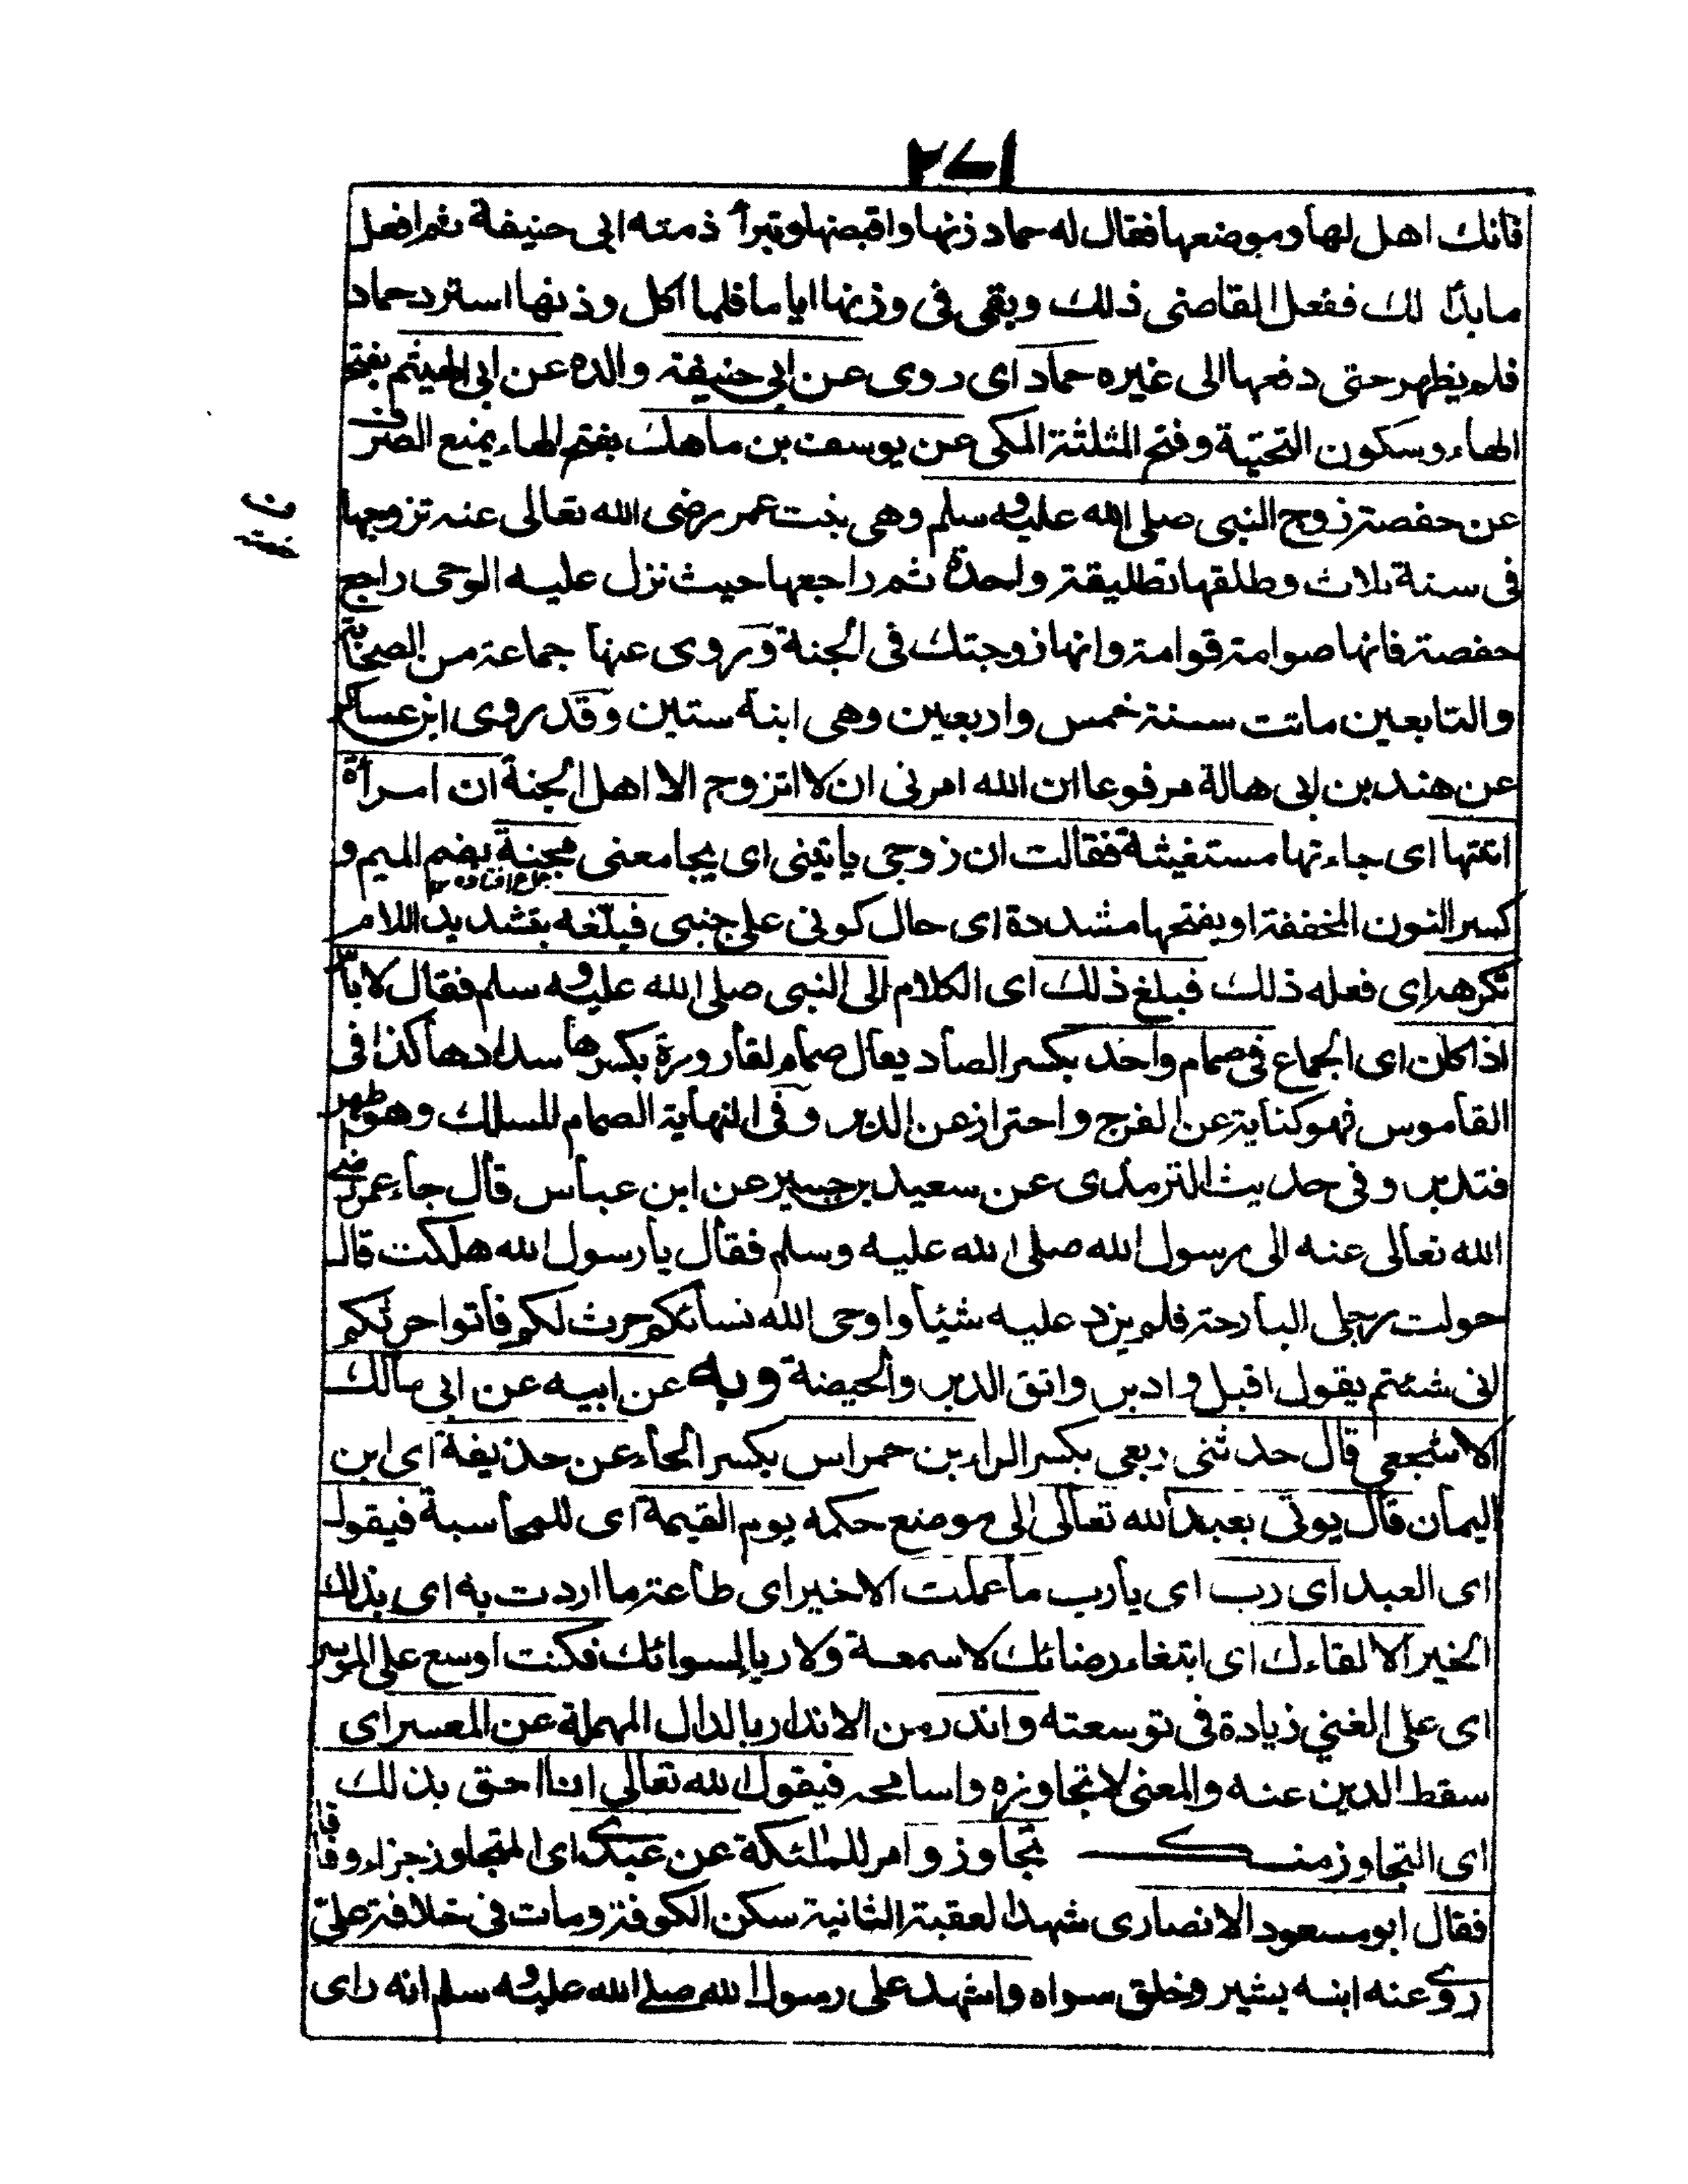 ٢٧١
فانك اهل لها وموضعها فقال له حماد زنها واقبضها وتبرأ ذمته ابى حنيفة ثم افعل
ما بدا لك ففعل القاضى ذلك وبقى فى وزنها اياما فلما اكل وزنها استرد حماد
فلم يظهر حتى دفعها الى غيره حماد اى روى عن ابى حنيفة والده عن ابى الهيثم بفتح
الهاء وسكون التحتية وفتح المثلثة المكى عن يوسف بن ماهك بفتح الهاء يمنع الصرف
عن حفصة زوج النبى صلى الله عليه وسلم وهى بنت عمر رضى الله تعالى عنه تزوجها
فى سنة ثلاث وطلقها تطليقة واحدة ثم راجعها حيث نزل عليه الوحى راجع
حفصة فانها صوامة قوامة وانها زوجتك فى الجنة وروى عنها جماعة من الصحابة
والتابعين ماتت سنة خمس واربعين وهى ابنة ستين وقد روى ابن عساكر
عن هند بن ابى هالة مرفوعا ان الله امرنى ان لا اتزوج الا اهل الجنة ان امرأة
اتتها اى جاءتها مستغيثة فقالت ان زوجى ياتينى اى يجامعنى مجنبة بضم الميم و
كسر النون المخففة او بفتحها مشددة اى حال كونى على جنبى فبلغه بتشديد اللام
تكرهه اى فعله ذلك فبلغ ذلك اى الكلام الى النبى صلى الله عليه وسلم فقال لا بأس
اذا كان اى الجماع فى صمام واحد بكسر الصاد يقال صمام القارورة بكسرها سدادها كذا فى
القاموس فهو كناية عن الفرج واحتراز عن الدبر وفى النهاية الصمام المسلك وهو ظهر
فتدبر وفى حديث الترمذى عن سعيد بن جبير عن ابن عباس قال جاء عمر رضى
الله تعالى عنه الى رسول الله صلى الله عليه وسلم فقال يا رسول الله هلكت قال
حولت رجلى البارحة فلم يزد عليه شيئا واوحى الله نسائكم حرث لكم فأتوا حرثكم
انى شئتم يقول اقبل وادبر واتق الدبر والحيضة وبه عن ابيه عن ابى مالك
الاشجعى قال حدثنى ربعى بكسر الراء بن حمراس بكسر الحاء عن حذيفة اى ابن
اليمان قال يوتى بعبد الله تعالى الى موضع حكمه يوم القيمة اى للمحاسبة فيقول
اى العبد اى رب اى يا رب ما عملت الا خيرا اى طاعة ما اردت به اى بذلك
الخير الا لقاءك اى ابتغاء رضائك لا سمعة ولا ريا لسوائك فكنت اوسع على الموسر
اى على الغنى زيادة فى توسعته واندر من الاندار بالدال المهملة عن المعسر اى
سقط الدين عنه والمعنى لا تجاوزه واسامحه فيقول الله تعالى انا احق بذلك
اى التجاوز منك تجاوزوا امر للملئكة عن عبدى اى المتجاوز جزاء وفاقا
فقال ابو مسعود الانصارى شهد العقبة الثانية سكن الكوفة ومات فى خلافة على
روى عنه ابنه بشير وخلق سواه واشهد على رسول الله صلى الله عليه وسلم انه راى